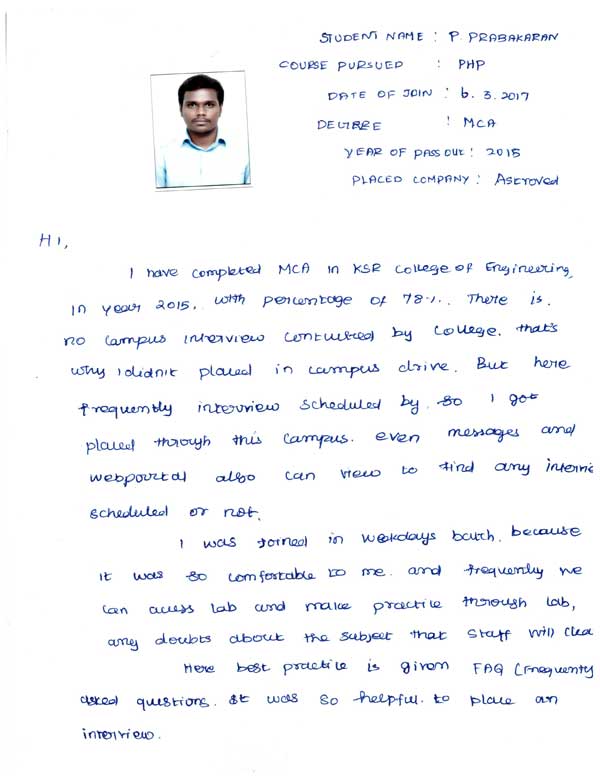 STUDENT NAME : P. PRABAKARAN
COURSE PURSUED : PHP
DATE OF JOIN : 6.3.2017
DEGREE : MCA
YEAR OF PASS OUT : 2015
PLACED COMPANY : Astroved
Hi,
I have completed MCA in KSR College of Engineering,
in year 2015. with percentage of 78%. There is.
no campus interview contucted by College. that's
why i didn't placed in campus drive. But here
frequently interview scheduled by. so I got
placed through this campus. even messages and
webportal also can view to find any intervie
scheduled or not.
I was joined in weekdays batch. because
it was so comfortable to me. and frequently we
can access lab and make practice through lab,
any doubts about the subject that staff will clea
Here best practice is given FAQ (Frequenty
asked questions. It was so helpful. to place an
interview.